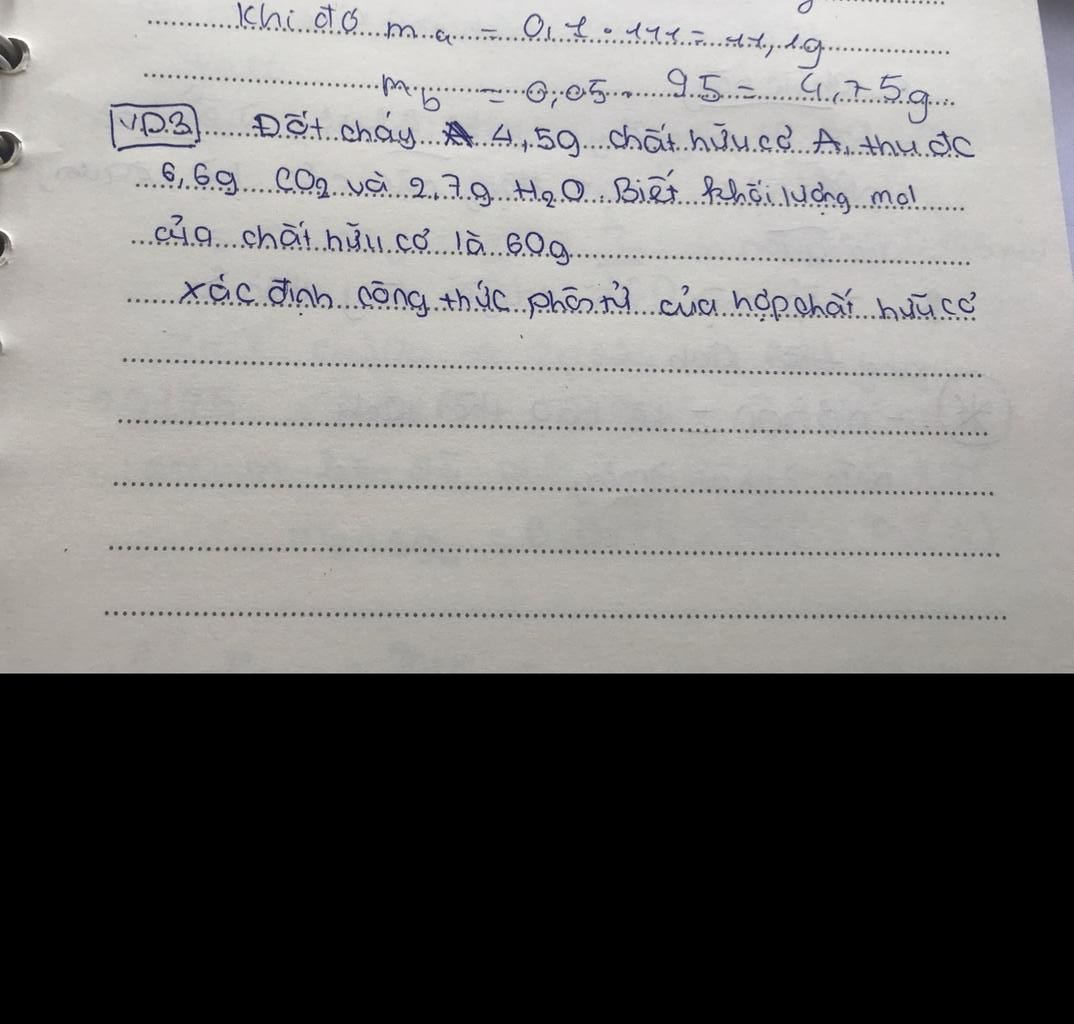 Khi đó m a = 0,1 . 111 = 11,1g
m b = 0,05 . 95 = 4,75g
VD3 Đốt cháy 4,5g chất hữu cơ A, thu đc
6,6g CO2 và 2,7g H2O. Biết khối lượng mol
của chất hữu cơ là 60g
xác định công thức phân tử của hợp chất hữu cơ